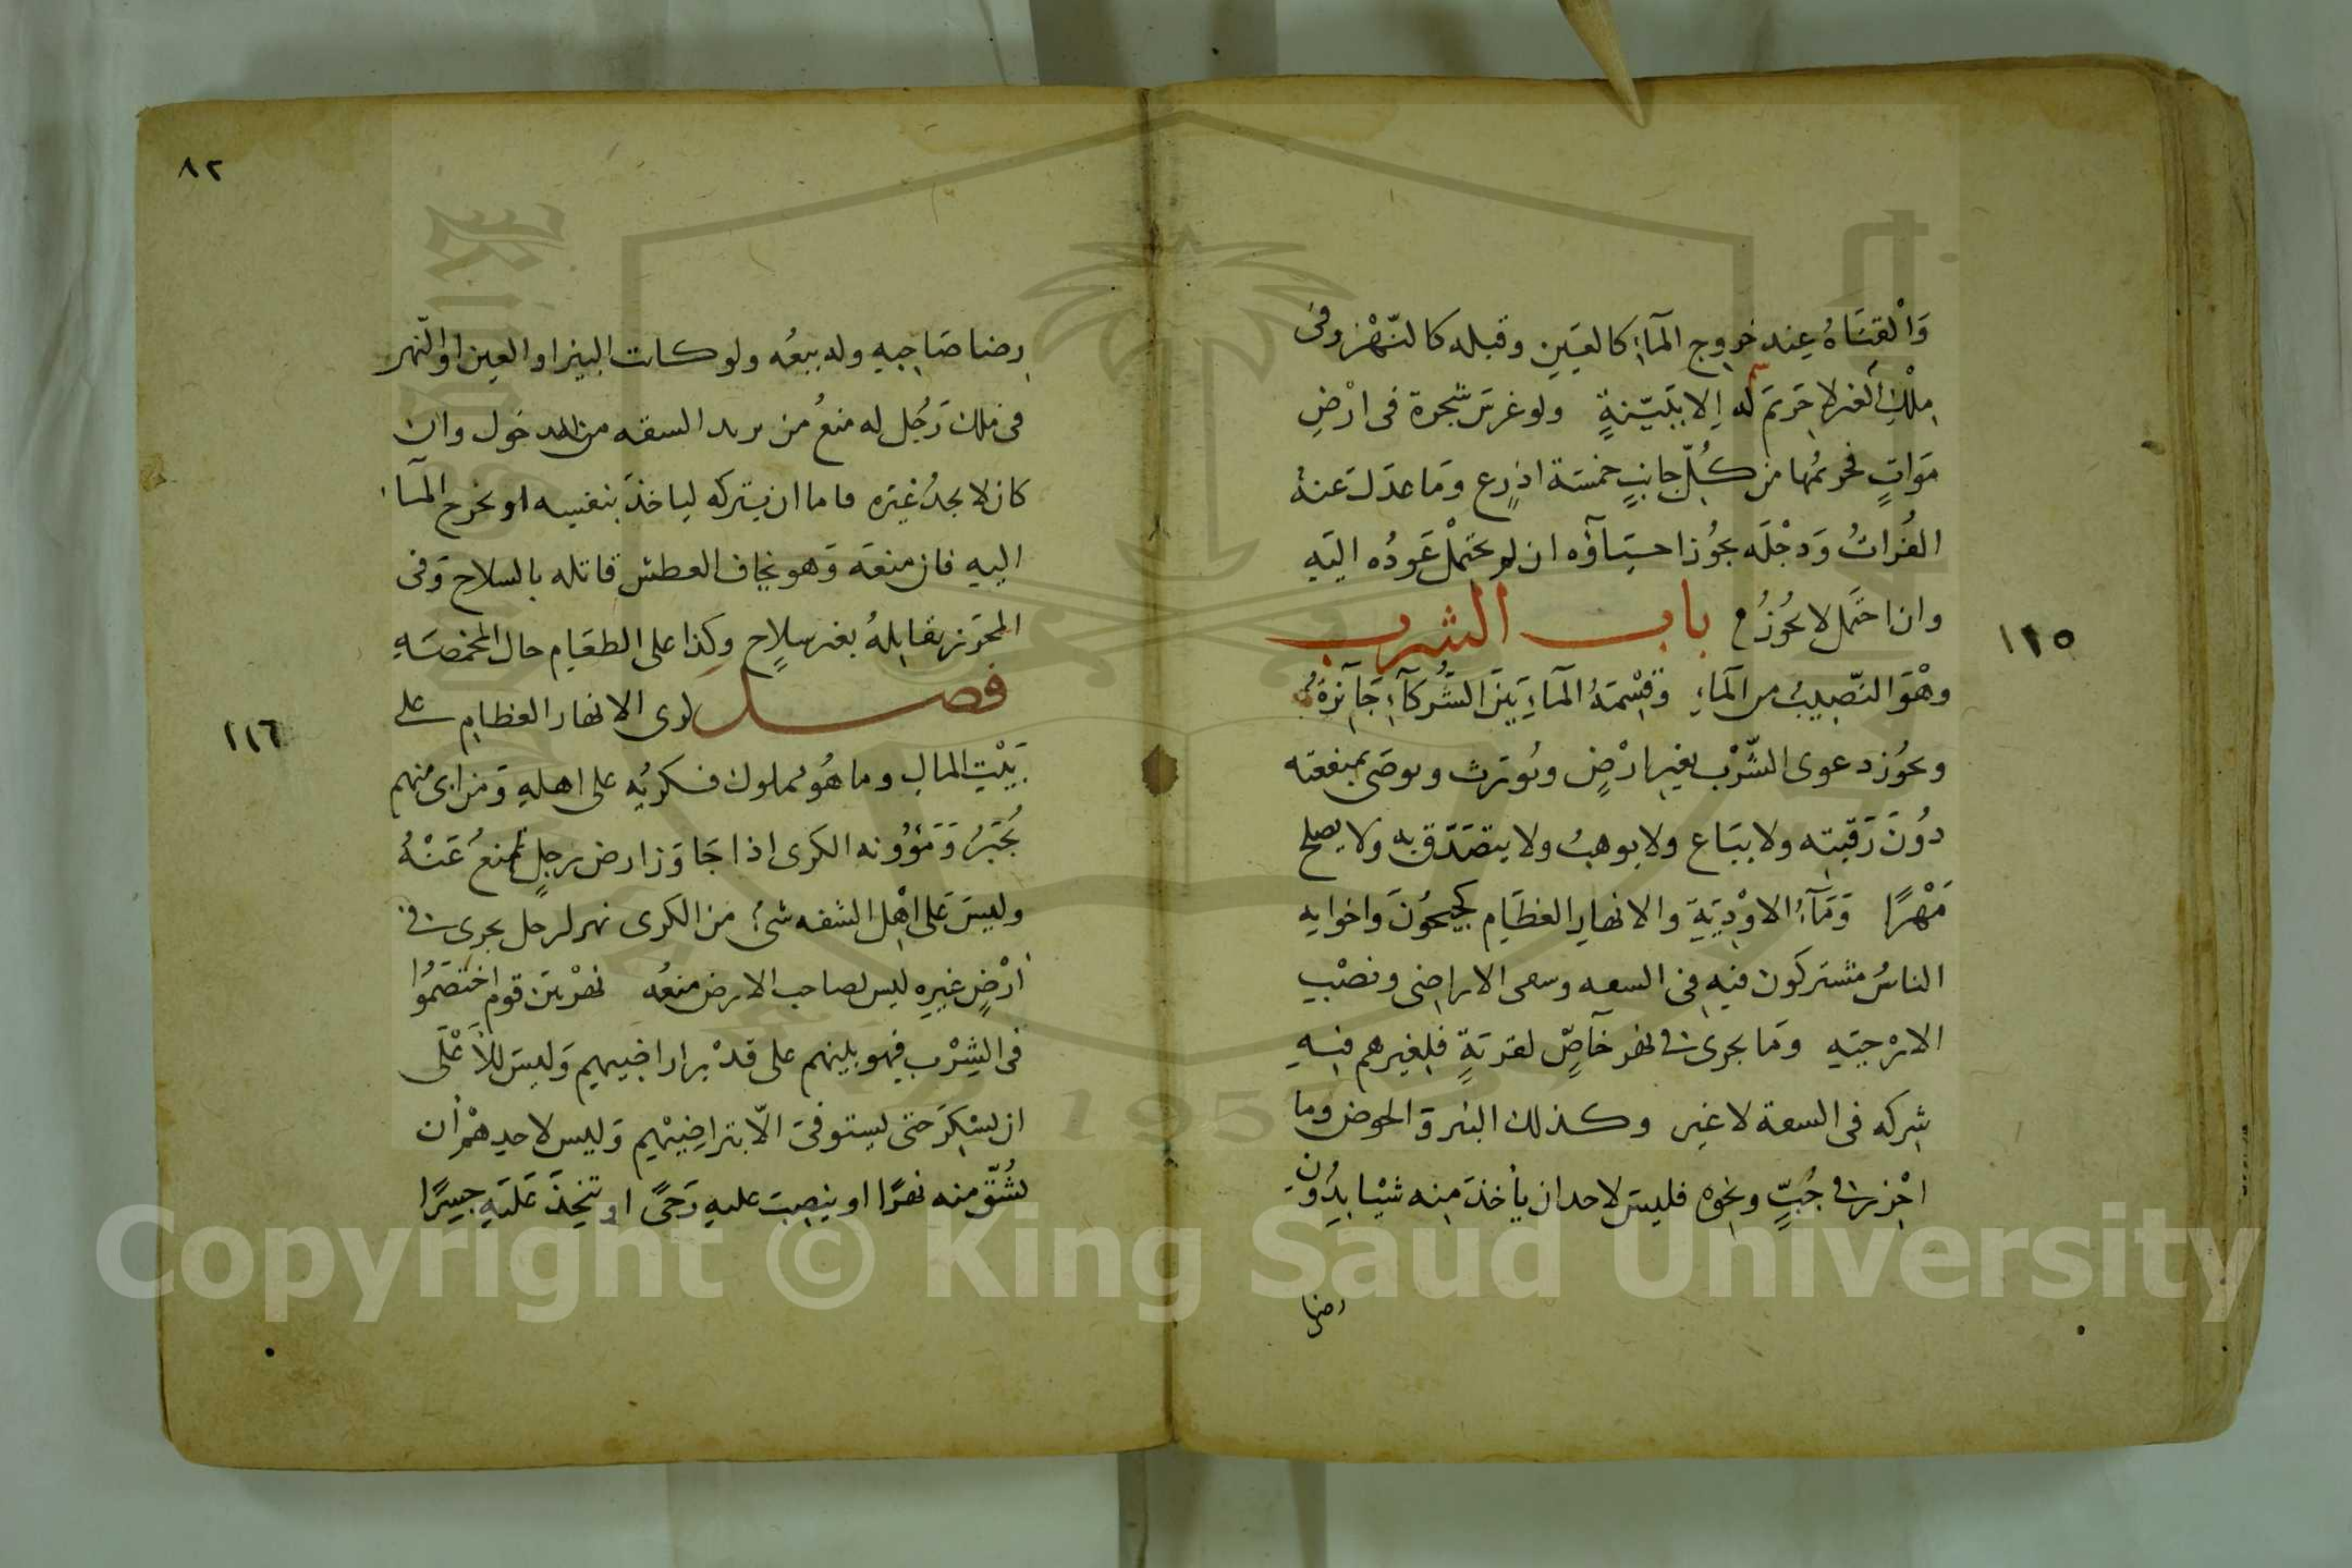 وَالْقَنَاةُ عِند خروج المآءِ كالعَين وقبله كالنّهْر وفى
مِلْكِ الغير لا حَريَم لَه إلا ببَيّنةٍ ولو غرسَ شجرة فى ارْضِ
مَوَاتٍ فحريمُها من كُلّ جانبٍ خمسَة اذرع وَمَا عدَل عنهُ
الفُراتُ وَدِجْلَه يجُوز احيَآؤه ان لم يحتمْل عَودُه اليَهِ
وان احتمل لا يجُوزُ م باب الشرب
وهْوَ النّصِيبُ من المآءِ وَقِسْمَةُ المآءِ بَينَ الشُركآءِ جَآئزةٌ
ويجُوز دعوى الشّرْب بغير ارْضٍ ويُورث ويوصَى بمنفعته
دوُنَ رَقبتِه ولا يبَاع ولا يوهبُ ولا يتصَدّق به ولا يصلح
مَهْرًا وَمَآءُ الاوْدِيَةِ والانهارِ العظَام كجيحُونَ واخواته
الناسُ مشتركون فيهِ فى السعه وسعى الاراضى ونصْبِ
الارْحِيَه وَمَا يجرى فى نهر خآصٍّ لقريَةٍ فلِغيرهم فيهِ
شركه فى السعة لا غير وكذلك البئر وَالحوض وما
احْرز فى جُبٍّ ونحوه فليسَ لاحد ان يأخذَ مِنه شيْا بِدُونِ
رضا
١١٥
٨٢
رضا صَاحِبِه وله بيعُه ولو كانت البيرا والعين او النهر
فى ملك رَجُل له منعُ من يريد السقه من الدخول وان
كان لا يجدُ غيرَه فاما ان يتركه لياخذَ بنفسِه او يخرج المآء
اليهِ فان منعَهَ وَهو يخاف العطش قاتله بالسلاح وَفى
المحَرز يقاتِلهُ بغير سلاحٍ وكذا على الطعَام حال المخمصَهِ
فصل كرى الانهار العظامِ على
بَيْتِ المالِ وما هُو مملوك فكريُه على اهلِهِ وَمَن ابى منهم
يُجْبَرُ وَمَؤُونه الكَرى اذا جَاوَز ارض رجلٍ تمنعُ عَنْهُ
وليسَ عَلى اهْل الشفه شئُ من الكرى نهر لرجل يجرى فى
ارْضٍ غيرِهِ ليس لصاحب الارض منعُه نهر بين قوم اختصَمُوا
فى الشِرْب فهو بينهم على قدْر اراضيهِم وَليسَ للأَعْلَى
ان يسْكِرَ حتى يستوفى الّا بتراضِيهْم وَليس لاحدِهمْ أن
يشُقّ منه نهرًا او ينصِبَ عليهِ رَحىً او يتخِذَ عَليَهِ جسِرًا
١١٦
Copyright © King Saud University
1957